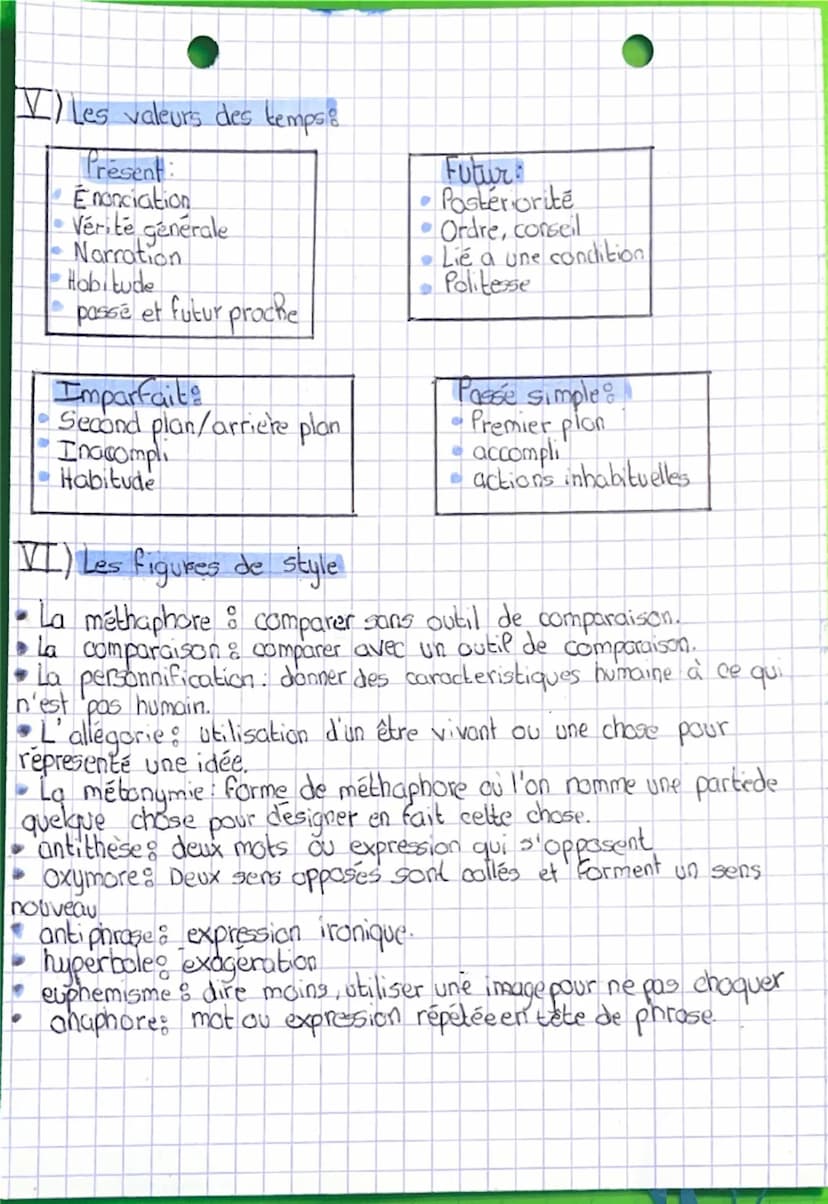 V) Les valeurs des temps:
Présent:
• Énonciation
• Vérité générale
• Narration
• Habitude
• passé et futur proche
Futur:
• Postériorité
• Ordre, conseil
• Lié a une condition
• Politesse
Imparfait:
• Second plan/arrière plan
• Inaccompli
• Habitude
Passé simple:
• Premier plan
• accompli
• actions inhabituelles
VI) Les figures de style
• La méthaphore : comparer sans outil de comparaison.
• La comparaison : comparer avec un outil de comparaison.
• La personnification : donner des caracteristiques humaine à ce qui
n'est pas humain.
• L'allégorie : utilisation d'un être vivant ou une chose pour
représenté une idée.
• La métonymie : forme de méthaphore où l'on nomme une partie de
quelque chose pour désigner en fait cette chose.
• antithèse : deux mots ou expression qui s'opposent
• oxymore : Deux sens opposés sont collés et forment un sens
nouveau
• antiphrase : expression ironique.
• hyperbole : exagération
• euphemisme : dire moins, utiliser une image pour ne pas choquer
• anaphore : mot ou expression répétée en tête de phrase.